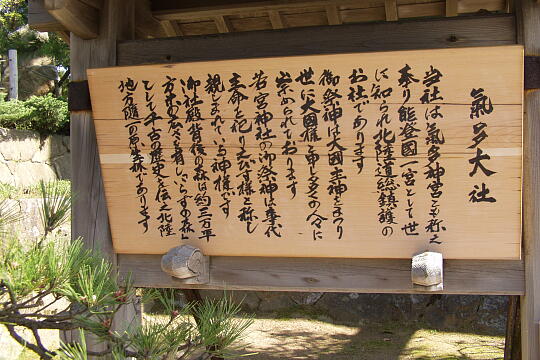 氣多大社
当社は氣多神宮とも称え
奉り能登國一宮として世
に知られ北陸道総鎮護の
お社であります
御祭神は大國主神とまつり
世に大國様と申し多くの人々に
崇められております
若宮神社の御祭神は事代
主命と祀り えびす様と称し
親しまれている神様です
御社殿背後の森は約三万平
方米の広さを有し いらずの森と
して千古の歴史を伝え北陸
地方随一の原生林であります